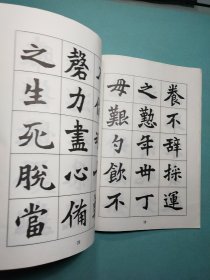 養不辭採運
之懃年丗丁
毋艱勺飲不
罄力盡心備
之生死脫當